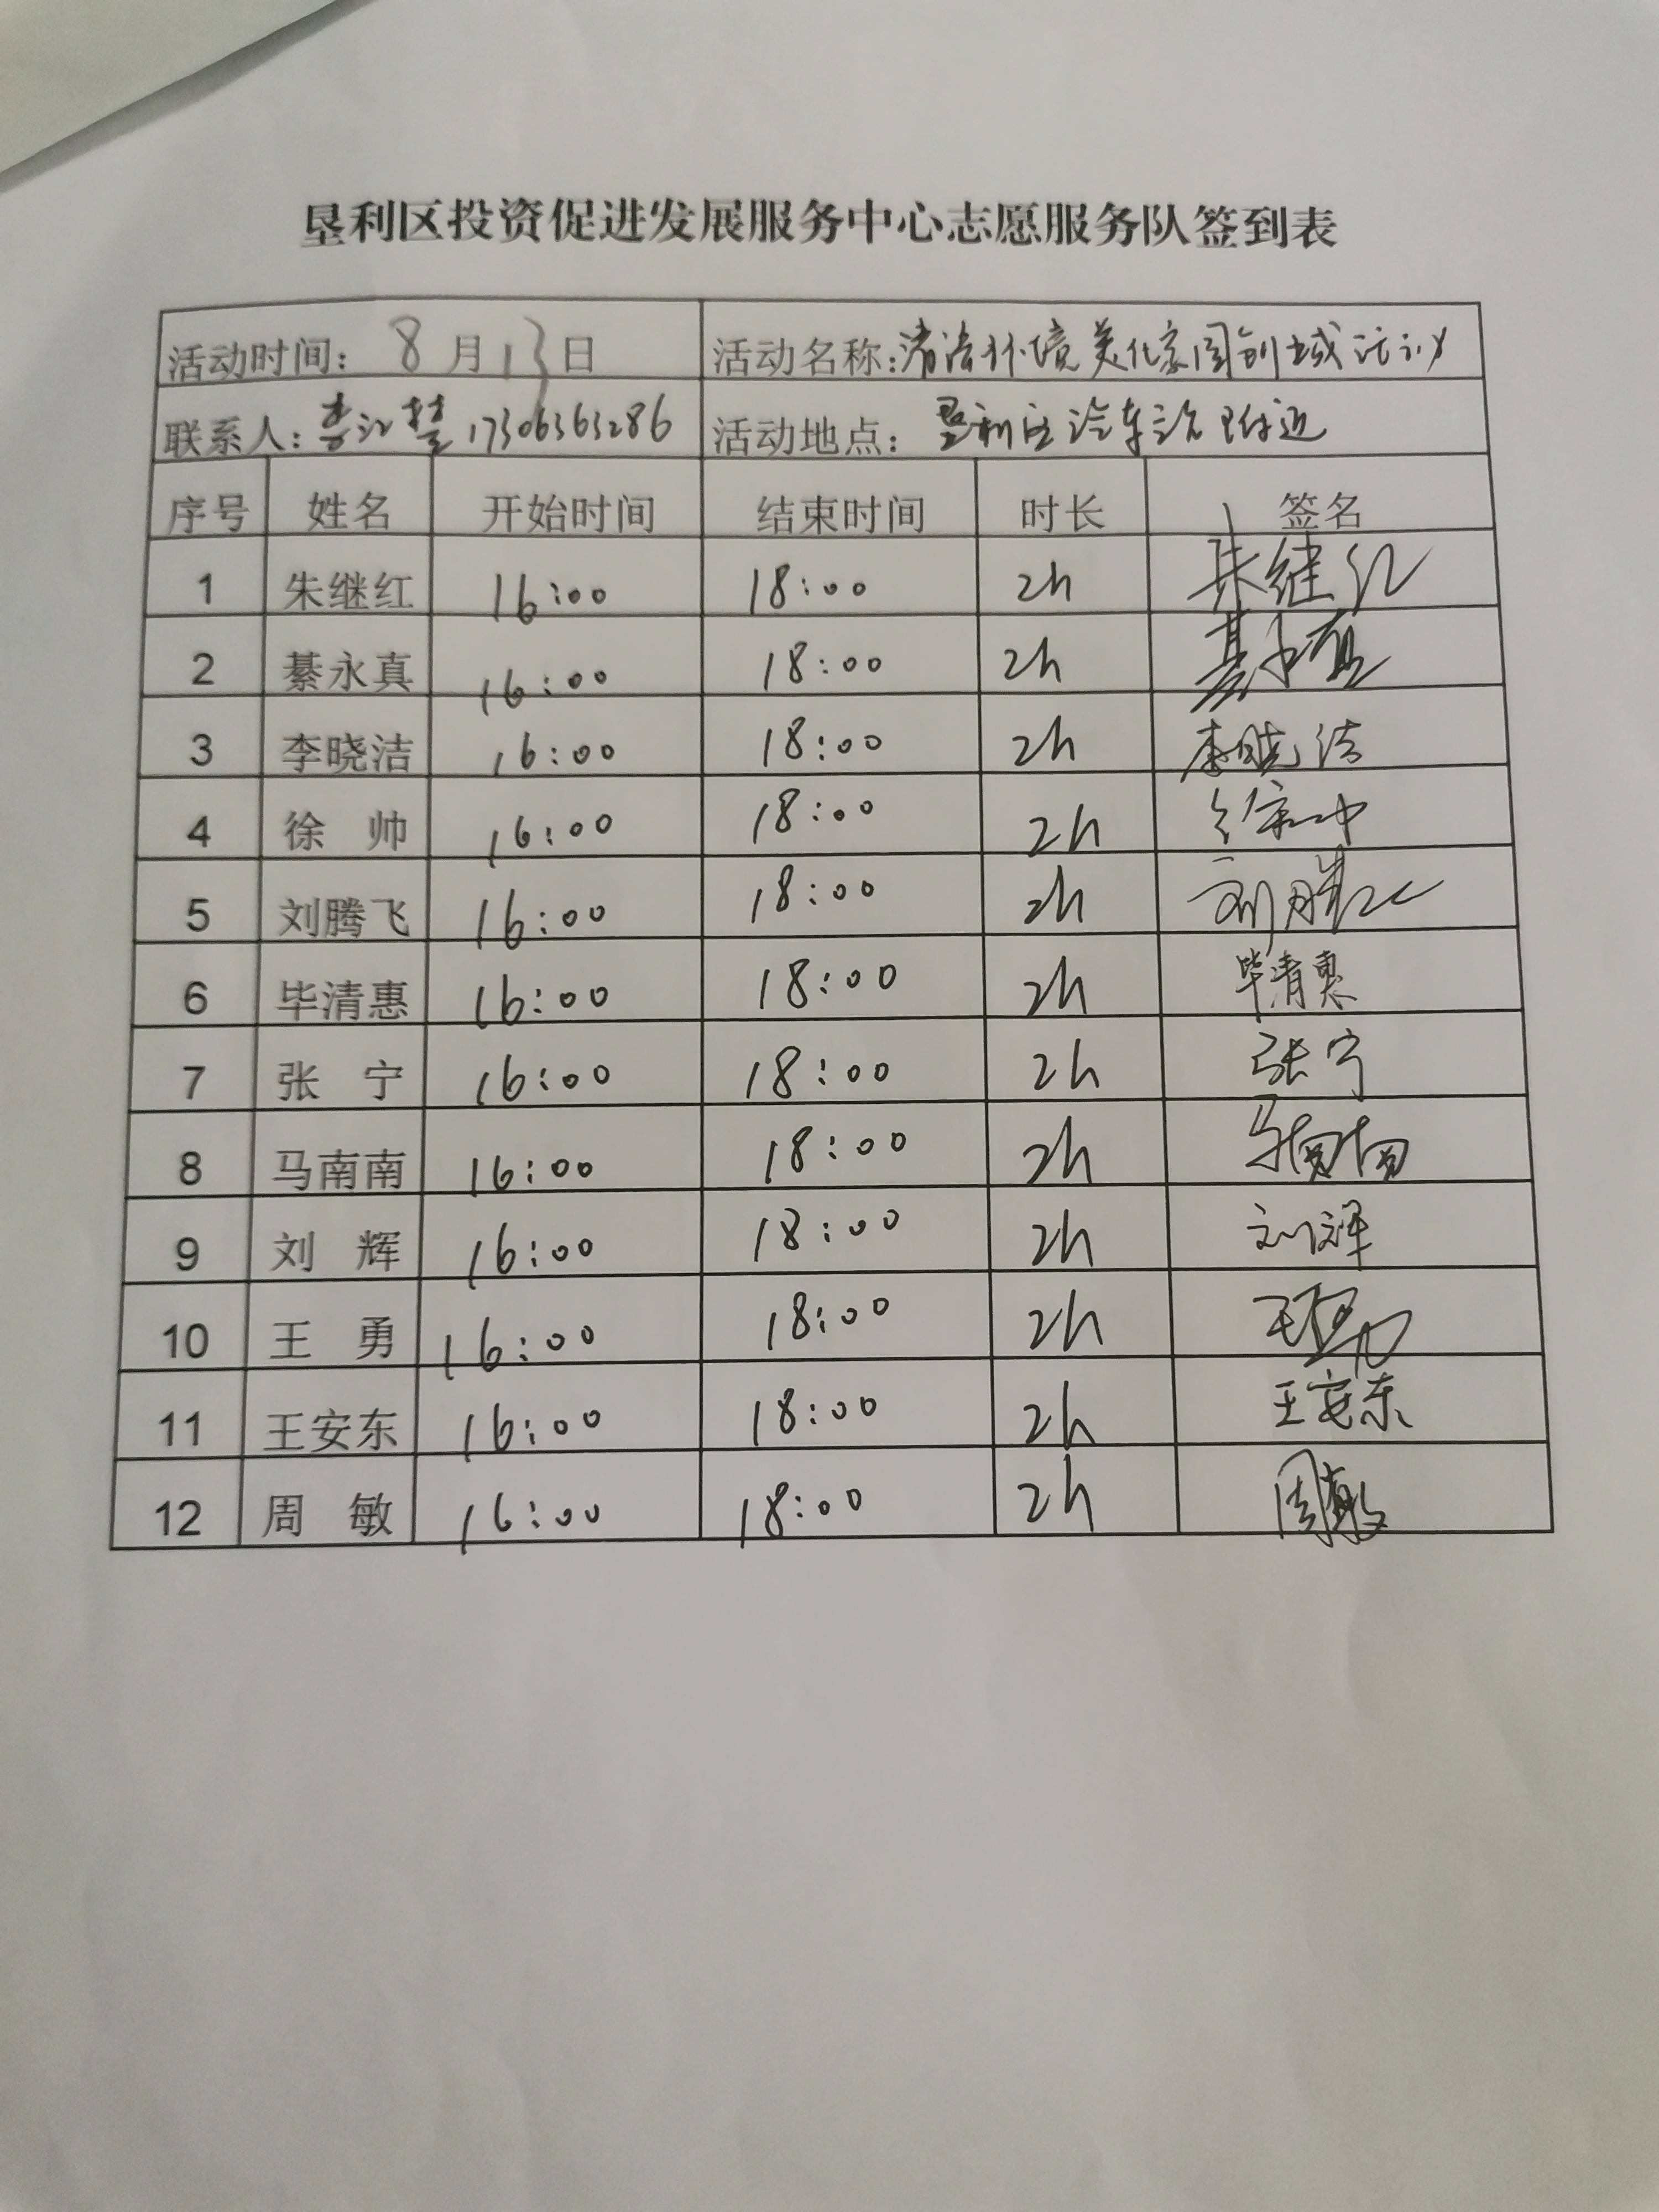 垦利区投资促进发展服务中心志愿服务队签到表
活动时间: 8月13日 活动名称: 清洁环境美化家园创城活动
联系人: 李江慧 17306363286 活动地点: 垦利区汽车站附近
序号 姓名 开始时间 结束时间 时长 签名
1 朱继红 16:00 18:00 2h 朱继红
2 綦永真 16:00 18:00 2h 綦永真
3 李晓洁 16:00 18:00 2h 李晓洁
4 徐 帅 16:00 18:00 2h 徐帅
5 刘腾飞 16:00 18:00 2h 刘腾飞
6 毕清惠 16:00 18:00 2h 毕清惠
7 张 宁 16:00 18:00 2h 张宁
8 马南南 16:00 18:00 2h 马南南
9 刘 辉 16:00 18:00 2h 刘辉
10 王 勇 16:00 18:00 2h 王勇
11 王安东 16:00 18:00 2h 王安东
12 周 敏 16:00 18:00 2h 周敏